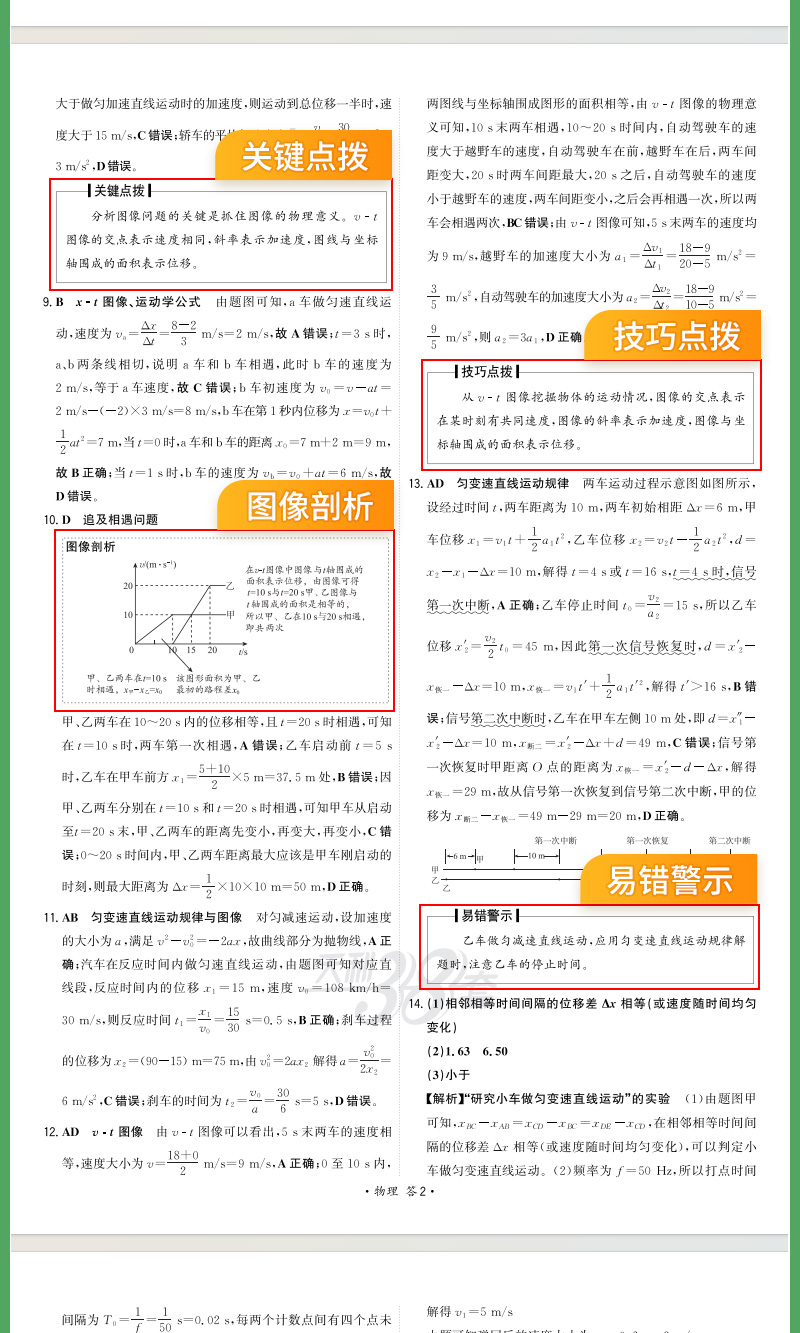 大于做匀加速直线运动时的加速度,则运动到总位移一半时,速
度大于 15 m/s,C 错误;轿车的平
3 m/s²,D 错误。
关键点拨
关键点拨
分析图像问题的关键是抓住图像的物理意义。v-t
图像的交点表示速度相同,斜率表示加速度,图线与坐标
轴围成的面积表示位移。
9. B x-t 图像、运动学公式 由题图可知,a 车做匀速直线运
动,速度为 vₐ=Δx/Δt=(8-2)/3 m/s=2 m/s,故 A 错误;t=3 s 时,
a、b 两条线相切,说明 a 车和 b 车相遇,此时 b 车的速度为
2 m/s,等于 a 车速度,故 C 错误;b 车初速度为 v₀=v-at=
2 m/s-(-2)×3 m/s=8 m/s,b 车在第 1 秒内位移为 x=v₀t+
1/2 at²=7 m,当 t=0 时,a 车和 b 车的距离 x₀=7 m+2 m=9 m,
故 B 正确;当 t=1 s 时,b 车的速度为 v_b=v₀+at=6 m/s,故
D 错误。
图像剖析
10. D 追及相遇问题
图像剖析
v/(m·s⁻¹)
20
乙
10
甲
0 10 15 20 t/s
在v-t图像中图像与t轴围成的
面积表示位移,由图像可得
t=10 s与t=20 s甲、乙图像与
t轴围成的面积是相等的,
所以甲、乙在10 s与20 s相遇,
即共两次
甲、乙两车在t=10 s
时相遇,x甲-x乙=x₀
该图形面积为甲、乙
最初的路程差x₀
甲、乙两车在 10～20 s 内的位移相等,且 t=20 s 时相遇,可知
在 t=10 s 时,两车第一次相遇,A 错误;乙车启动前 t=5 s
时,乙车在甲车前方 x₁=(5+10)/2×5 m=37.5 m 处,B 错误;因
甲、乙两车分别在 t=10 s 和 t=20 s 时相遇,可知甲车从启动
至t=20 s 末,甲、乙两车的距离先变小,再变大,再变小,C 错
误;0～20 s 时间内,甲、乙两车距离最大应该是甲车刚启动的
时刻,则最大距离为 Δx=1/2×10×10 m=50 m,D 正确。
11. AB 匀变速直线运动规律与图像 对匀减速运动,设加速度
的大小为 a,满足 v²-v₀²=-2ax,故曲线部分为抛物线,A 正
确;汽车在反应时间内做匀速直线运动,由题图可知对应直
线段,反应时间内的位移 x₁=15 m,速度 v₀=108 km/h=
30 m/s,则反应时间 t₁=x₁/v₀=15/30 s=0.5 s,B 正确;刹车过程
的位移为 x₂=(90-15) m=75 m,由 v₀²=2ax₂ 解得 a=v₀²/2x₂=
6 m/s²,C 错误;刹车的时间为 t₂=v₀/a=30/6 s=5 s,D 错误。
12. AD v-t 图像 由 v-t 图像可以看出,5 s 末两车的速度相
等,速度大小为 v=(18+0)/2 m/s=9 m/s,A 正确;0 至 10 s 内,
两图线与坐标轴围成图形的面积相等,由 v-t 图像的物理意
义可知,10 s 末两车相遇,10～20 s 时间内,自动驾驶车的速
度大于越野车的速度,自动驾驶车在前,越野车在后,两车间
距变大,20 s 时两车间距最大,20 s 之后,自动驾驶车的速度
小于越野车的速度,两车间距变小,之后会再相遇一次,所以两
车会相遇两次,BC 错误;由 v-t 图像可知,5 s 末两车的速度均
为 9 m/s,越野车的加速度大小为 a₁=Δv₁/Δt₁=(18-9)/(20-5) m/s²=
3/5 m/s²,自动驾驶车的加速度大小为 a₂=Δv₂/Δt₂=(18-9)/(10-5) m/s²=
9/5 m/s²,则 a₂=3a₁,D 正确
技巧点拨
技巧点拨
从 v-t 图像挖掘物体的运动情况,图像的交点表示
在某时刻有共同速度,图像的斜率表示加速度,图像与坐
标轴围成的面积表示位移。
13. AD 匀变速直线运动规律 两车运动过程示意图如图所示,
设经过时间 t,两车距离为 10 m,两车初始相距 Δx=6 m,甲
车位移 x₁=v₁t+1/2 a₁t²,乙车位移 x₂=v₂t-1/2 a₂t²,d=
x₂-x₁-Δx=10 m,解得 t=4 s 或 t=16 s,t=4 s 时,信号
第一次中断,A 正确;乙车停止时间 t₀=v₂/a₂=15 s,所以乙车
位移 x′₂=v₂/2 t₀=45 m,因此第一次信号恢复时,d=x′₂-
x恢一-Δx=10 m,x恢一=v₁t′+1/2 a₁t′²,解得 t′>16 s,B 错
误;信号第二次中断时,乙车在甲车左侧 10 m 处,即 d=x″₁-
x′₂-Δx=10 m,x断二=x′₂-Δx+d=49 m,C 错误;信号第
一次恢复时甲距离 O 点的距离为 x恢一=x′₂-d-Δx,解得
x恢一=29 m,故从信号第一次恢复到信号第二次中断,甲的位
移为 x断二-x恢一=49 m-29 m=20 m,D 正确。
第一次中断 第一次恢复 第二次中断
6 m 甲 10 m
甲
乙
乙
易错警示
易错警示
乙车做匀减速直线运动,应用匀变速直线运动规律解
题时,注意乙车的停止时间。
天利38套
14. (1)相邻相等时间间隔的位移差 Δx 相等(或速度随时间均匀
变化)
(2)1.63 6.50
(3)小于
【解析】“研究小车做匀变速直线运动”的实验 (1)由题图甲
可知,x_BC-x_AB=x_CD-x_BC=x_DE-x_CD,在相邻相等时间间
隔的位移差 Δx 相等(或速度随时间均匀变化),可以判定小
车做匀变速直线运动。(2)频率为 f=50 Hz,所以打点时间
·物理 答2·
间隔为 T₀=1/f=1/50 s=0.02 s,每两个计数点间有四个点未
解得 v₁=5 m/s